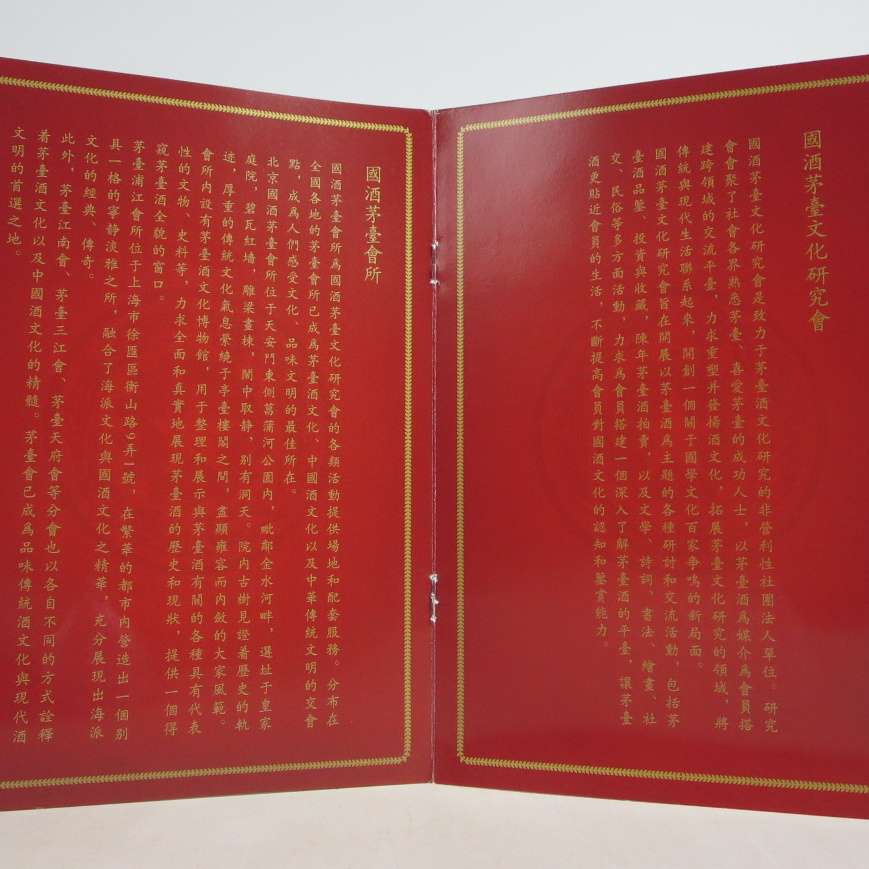 國酒茅臺文化研究會
國酒茅臺文化研究會是致力于茅臺酒文化研究的非營利性社團法人單位。研究
會會聚了社會各界熟悉茅臺、喜愛茅臺的成功人士，以茅臺酒爲媒介爲會員搭
建跨領域的交流平臺，力求重塑并發揚酒文化，拓展茅臺文化研究的領域，將
傳統與現代生活聯系起來，開創一個關于國學文化百家爭鳴的新局面。
國酒茅臺文化研究會旨在開展以茅臺酒爲主題的各種研討和交流活動，包括茅
臺酒品鑒、投資與收藏，陳年茅臺酒拍賣，以及文學、詩詞、書法、繪畫、社
交、民俗等多方面活動，力求爲會員搭建一個深入了解茅臺酒的平臺，讓茅臺
酒更貼近會員的生活，不斷提高會員對國酒文化的認知和鑒賞能力。
國酒茅臺會所
國酒茅臺會所爲國酒茅臺文化研究會的各類活動提供場地和配套服務。分布在
全國各地的茅臺會所已成爲茅臺酒文化、中國酒文化以及中華傳統文明的交會
點，成爲人們感受文化、品味文明的最佳所在。
北京國酒茅臺會所位于天安門東側菖蒲河公園內，毗鄰金水河畔，選址于皇家
庭院，碧瓦紅墻，雕梁畫棟，鬧中取靜，别有洞天。院內古樹見證着歷史的軌
迹，厚重的傳統文化氣息縈繞于亭臺樓閣之間，盡顯雍容而內斂的大家風範。
會所內設有茅臺酒文化博物館，用于整理和展示與茅臺酒有關的各種具有代表
性的文物、史料等，力求全面和真實地展現茅臺酒的歷史和現狀，提供一個得
窺茅臺酒全貌的窗口。
茅臺浦江會所位于上海市徐匯區衡山路9弄一號，在繁華的都市內營造出一個别
具一格的寧静淡雅之所，融合了海派文化與國酒文化之精華，充分展現出海派
文化的經典、傳奇。
此外，茅臺江南會、茅臺三江會、茅臺天府會等分會也以各自不同的方式詮釋
着茅臺酒文化以及中國酒文化的精髓。茅臺會已成爲品味傳統酒文化與現代酒
文明的首選之地。